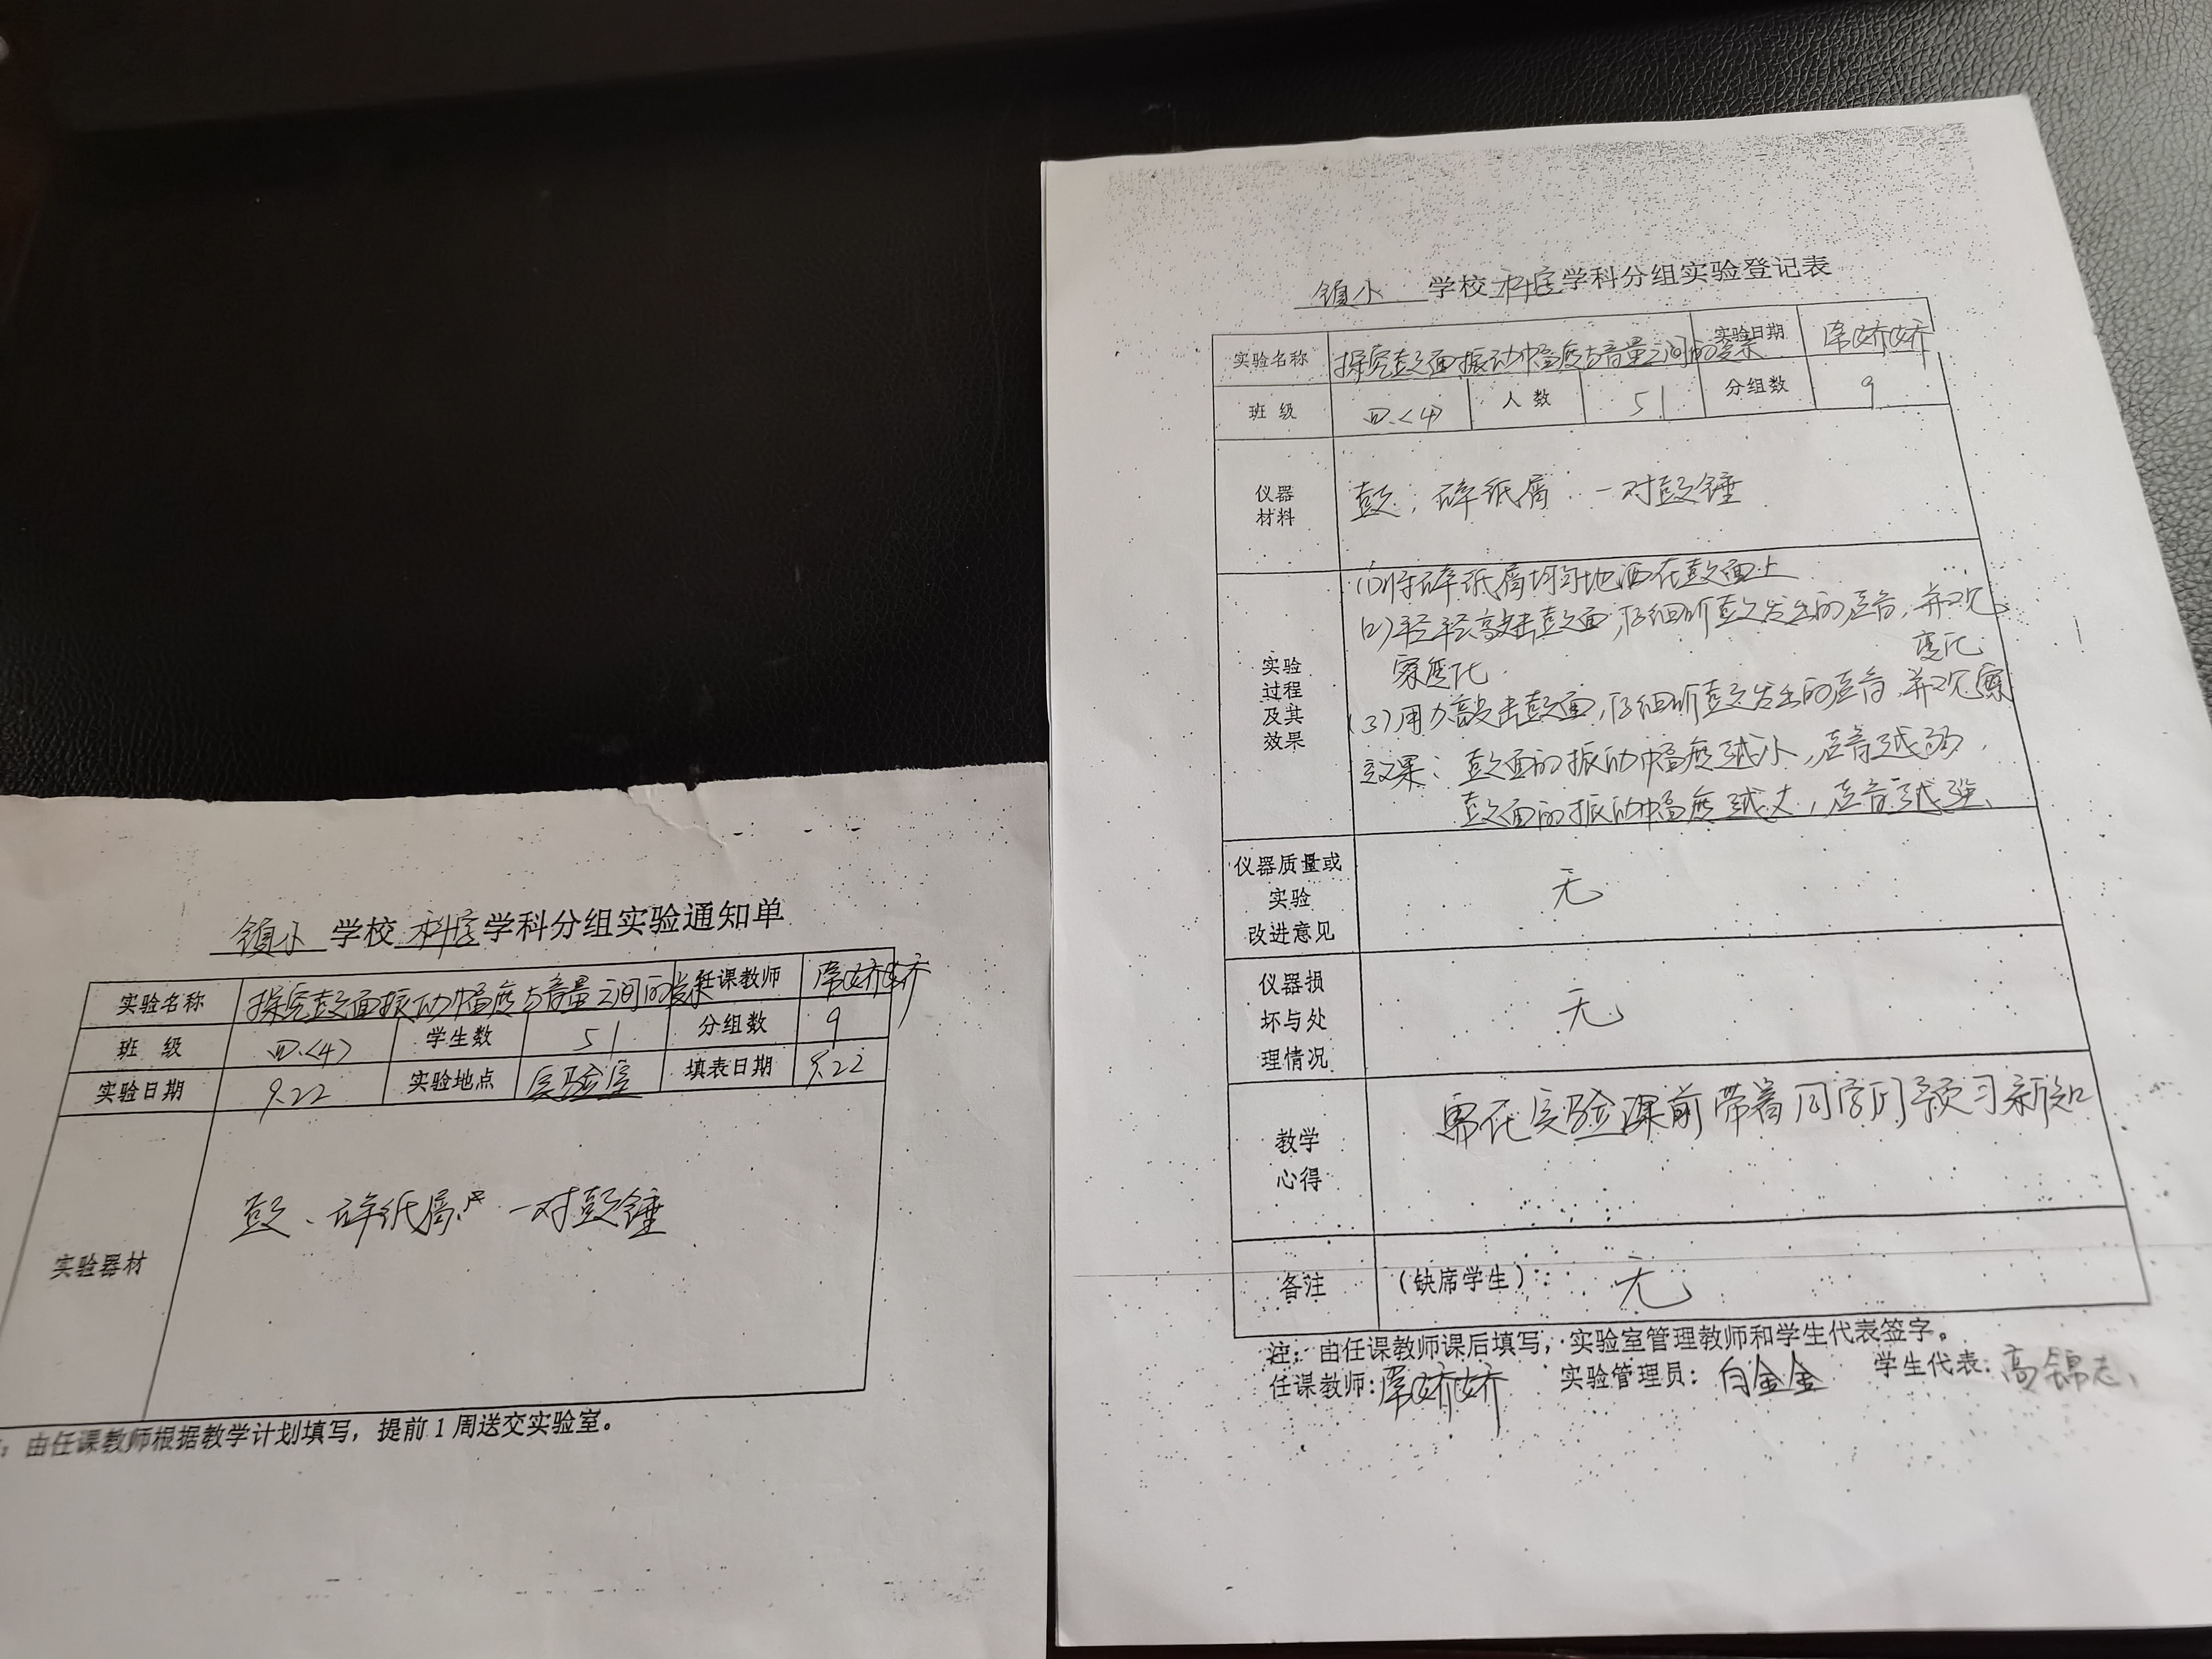 镇小 学校 科学 学科分组实验通知单
实验名称 探究鼓面振动幅度与音量之间的关系 任课教师 常娇娇
班 级 四.<4> 学生数 51 分组数 9
实验日期 9.22 实验地点 实验室 填表日期 9.22
实验器材 鼓、碎纸屑、一对鼓锤
由任课教师根据教学计划填写，提前1周送交实验室。
镇小 学校 科学 学科分组实验登记表
实验名称 探究鼓面振动幅度与音量之间的关系 实验日期 常娇娇
班 级 四.<4> 人 数 51 分组数 9
仪器
材料
鼓；碎纸屑 一对鼓锤
实验
过程
及其
效果
(1)将碎纸屑均匀地洒在鼓面上
(2)轻轻敲击鼓面,仔细听鼓发出的声音,并观
察变化
(3)用力敲击鼓面,仔细听鼓发出的声音 并观察
变化
效果：鼓面的振动幅度越小,声音越弱.
鼓面的振动幅度越大,声音越强、
仪器质量或
实验
改进意见
无
仪器损
坏与处
理情况
无
教学
心得
要在实验课前带着同学们预习新知
备注 (缺席学生): 无
注：由任课教师课后填写，实验室管理教师和学生代表签字。
任课教师:常娇娇 实验管理员: 白金金 学生代表:高锦志